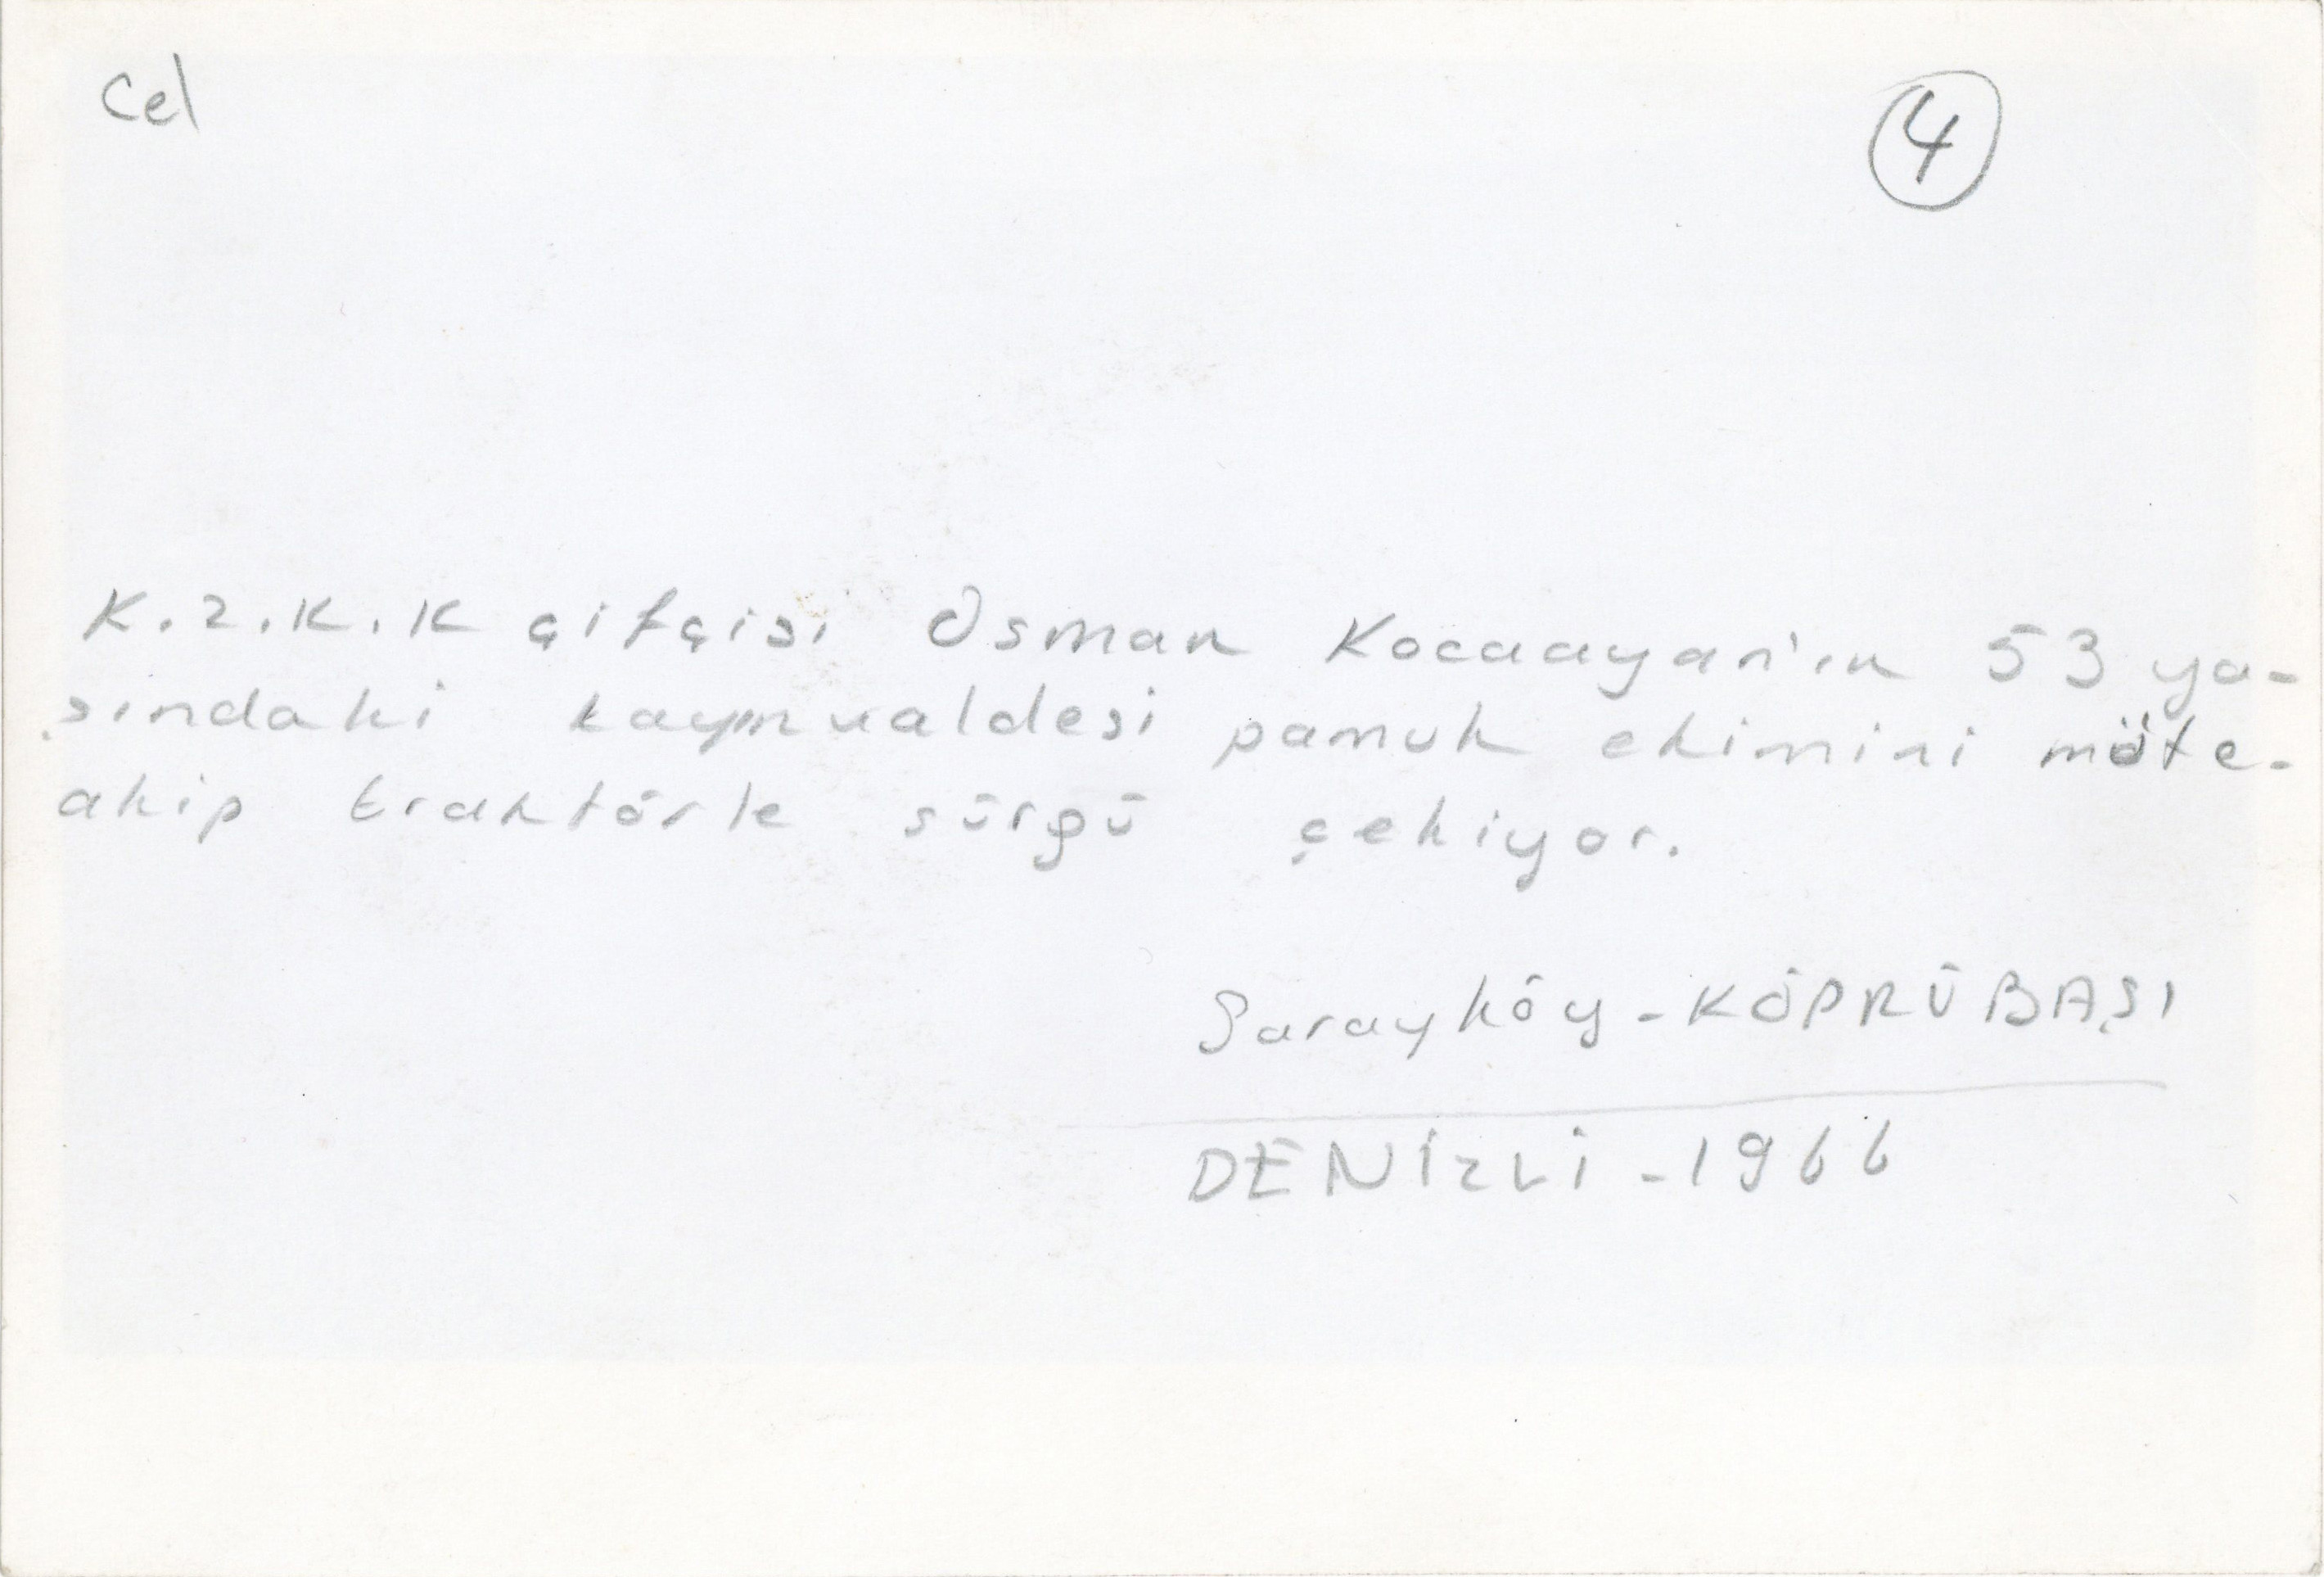 Cel
4
K.Z.K.K çifçisi Osman Kocaayan'ın 53 ya-
şındaki kaynvaldesi pamuk ekimini müte-
akip traktörle sürgü çekiyor.
Sarayköy-KÖPRÜBAŞI
DENİZLİ-1966